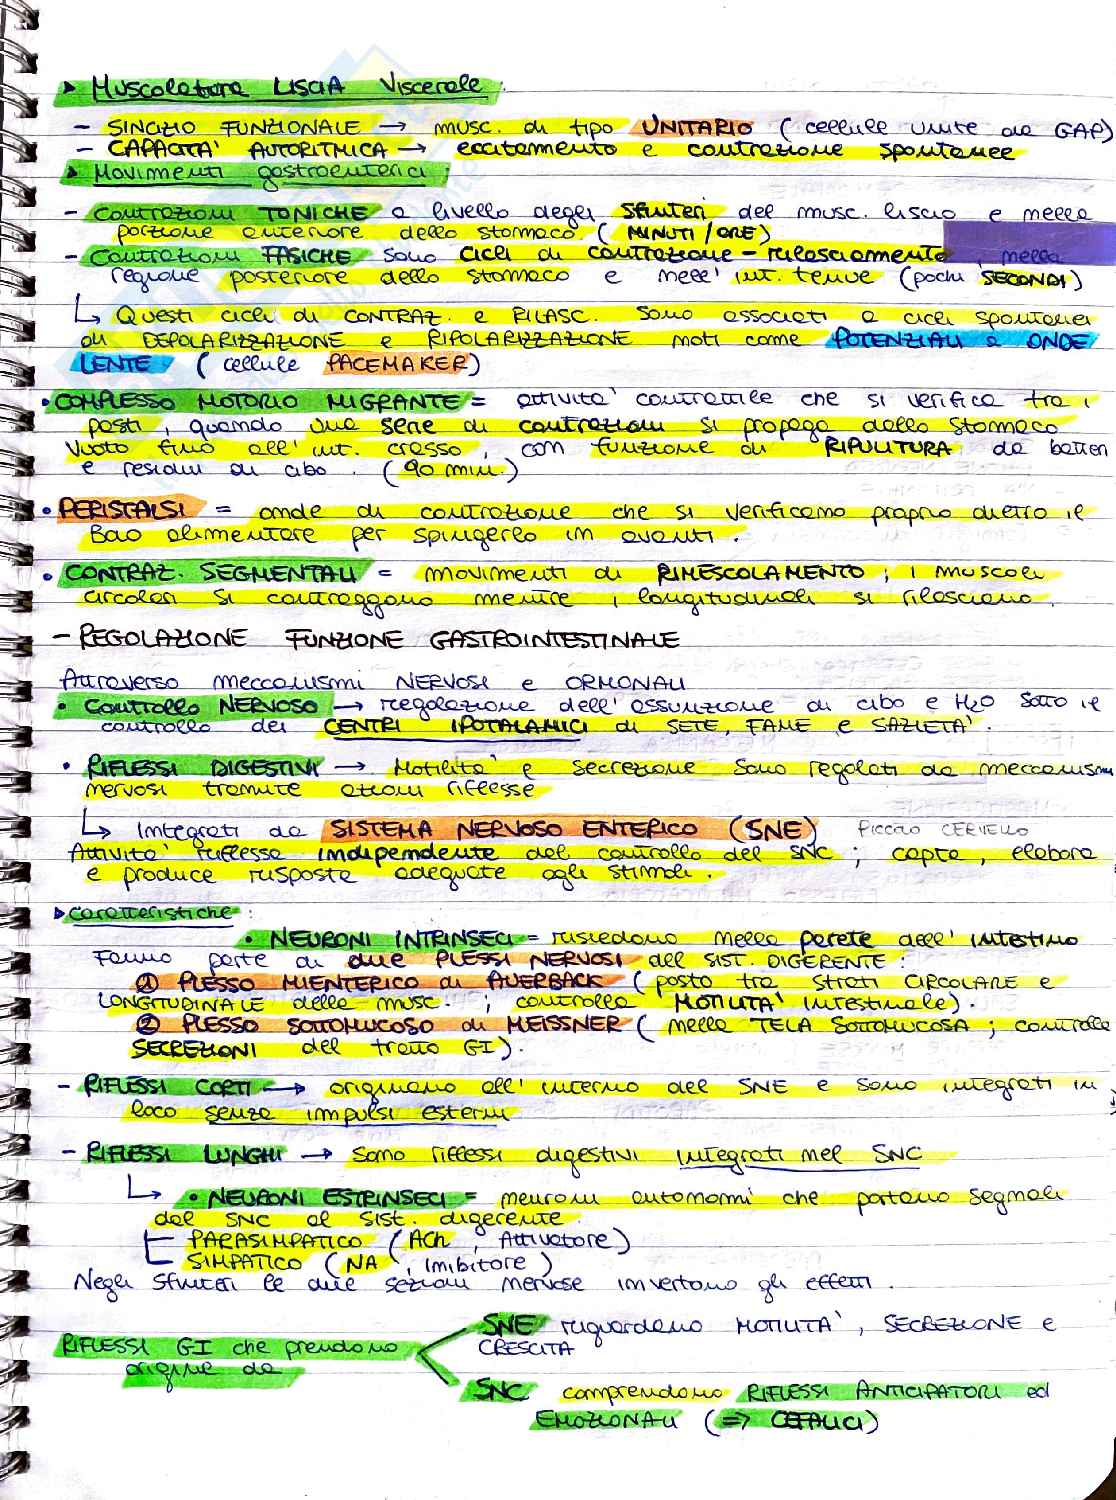 ▸ Muscolatura LISCIA Viscerale :
- SINCIZIO FUNZIONALE → musc. di tipo UNITARIO ( cellule unite da GAP)
- CAPACITA' AUTORITMICA → eccitamento e contrazione spontanee
▸ Movimenti gastroenterici :
- Contrazioni TONICHE a livello degli sfinteri del musc. liscio e nella
porzione anteriore dello stomaco. ( MINUTI / ORE)
- Contrazioni FASICHE sono cicli di contrazione - rilasciamento, nella
regione posteriore dello stomaco e nell' int. tenue (pochi SECONDI)
↳ Questi cicli di CONTRAZ. e RILASC. sono associati a cicli spontanei
di DEPOLARIZZAZIONE e RIPOLARIZZAZIONE noti come POTENZIALI a ONDE
LENTE ( cellule PACEMAKER)
• COMPLESSO MOTORIO MIGRANTE = attivita' contrattile che si verifica tra i
pasti, quando una serie di contrazioni si propaga dallo stomaco
vuoto fino all' int. crasso, con funzione di RIPULITURA da batteri
e residui di cibo . ( 90 min.)
• PERISTALSI = onde di contrazione che si verificano proprio dietro il
Bolo alimentare per spingerlo in avanti .
• CONTRAZ. SEGMENTALI = movimenti di RIMESCOLAMENTO ; i muscoli
circolari si contraggono mentre i longitudinali si rilasciano.
- REGOLAZIONE FUNZIONE GASTROINTESTINALE
Attraverso meccanismi NERVOSI e ORMONALI
• Controllo NERVOSO → regolazione dell' assunzione di cibo e H2O sotto il
controllo dei CENTRI IPOTALAMICI di SETE, FAME e SAZIETA'.
• RIFLESSI DIGESTIVI → Motilita' e secrezione sono regolati da meccanismi
nervosi tramite azioni riflesse
↳ Integrati da SISTEMA NERVOSO ENTERICO (SNE) PICCOLO CERVELLO
Attivita' riflessa indipendente dal controllo del SNC ; capta, elabora
e produce risposte adeguate agli stimoli .
▸ Caratteristiche :
• NEURONI INTRINSECI = risiedono nella parete dell' intestino
Fanno parte di due PLESSI NERVOSI del SIST. DIGERENTE :
① PLESSO MIENTERICO di AUERBACK ( posto tra strati CIRCOLARE e
LONGITUDINALE della musc. ; controlla MOTILITA' intestinale).
② PLESSO SOTTOMUCOSO di MEISSNER ( nella TELA SOTTOMUCOSA ; controlla
SECREZIONI del tratto GI).
- RIFLESSI CORTI → originano all' interno del SNE e sono integrati in
loco senza impulsi esterni
- RIFLESSI LUNGHI → sono riflessi digestivi integrati nel SNC
↳ • NEURONI ESTRINSECI = neuroni autonomi che portano segnali
dal SNC al sist. digerente
PARASIMPATICO ( ACh , Attivatore)
SIMPATICO ( NA , inibitore )
Negli sfinteri le due sezioni nervose invertono gli effetti .
SNE riguardano MOTILITA', SECREZIONE e
CRESCITA
RIFLESSI GI che prendono
origine da
SNC comprendono RIFLESSI ANTICIPATORI ed
EMOZIONALI (⇒ CEFALICI)